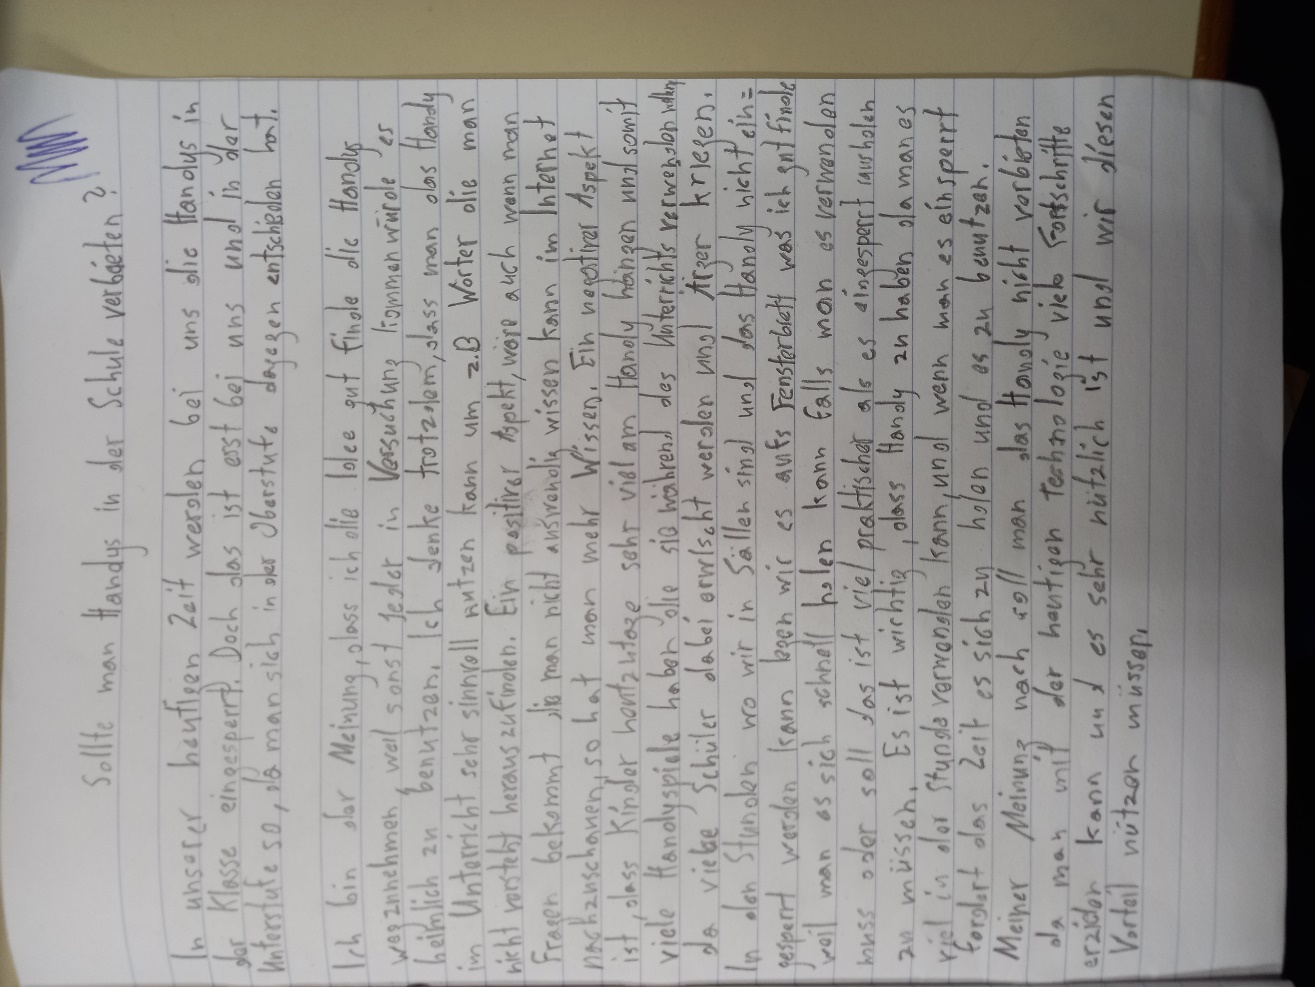 Sollte man Handys in der Schule verbieten?
In unserer heutigen Zeit werden bei uns die Handys in
der Klasse eingesperrt. Doch das ist erst bei uns und in der
Unterstufe so, da man sich in der Oberstufe dagegen entschieden hat.
Ich bin der Meinung, dass ich die Idee gut finde die Handys
wegzunehmen, weil sonst jeder in Versuchung kommen würde es
heimlich zu benutzen. Ich denke trotzdem, dass man das Handy
im Unterricht sehr sinnvoll nutzen kann um z.B Wörter die man
nicht versteht herauszufinden. Ein positiver Aspekt, wäre auch wenn man
Fragen bekommt die man nicht auswendig wissen kann im Internet
nachzuschauen, so hat man mehr Wissen. Ein negativer Aspekt
ist, dass Kinder heutzutage sehr viel am Handy hängen und somit
viele Handyspiele haben die sie während des Unterrichts verwenden wollen
da viele Schüler dabei erwischt werden und Ärger kriegen.
In den Stunden wo wir in Sällen sind und das Handy nicht ein=
gesperrt werden kann legen wir es aufs Fensterbrett was ich gut finde
weil man es sich schnell holen kann falls man es verwenden
muss oder soll das ist viel praktischer als es eingesperrt rausholen
zu müssen. Es ist wichtig, dass Handy zu haben da man es
viel in der Stunde verwenden kann, und wenn man es einsperrt
fordert das Zeit es sich zu holen und es zu benutzen.
Meiner Meinung nach soll man das Handy nicht verbieten
da man mit der heutigen Technologie viele Fortschritte
erzielen kann und es sehr nützlich ist und wir diesen
Vorteil nützen müssen.